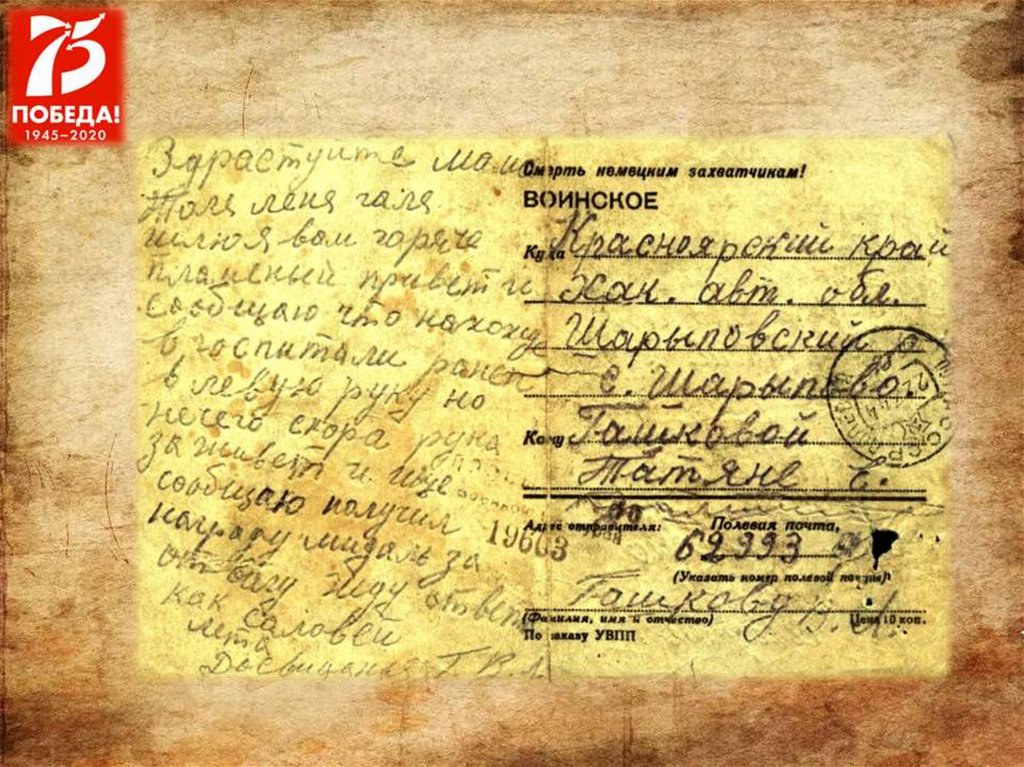 75
ПОБЕДА!
1945–2020
Здраствуите мама
Толя леня галя
шлюя вам горяче
пламеный привет и
сообщаю что нахожу
в госпитали ранен
в левую руку но
нечего скора рука
заживет и ище
сообщаю получил
награду мидаль за
отвагу жду ответ
как Саловей
лета
Досвиданья Г. В. Л.
Смерть немецким захватчикам!
ВОИНСКОЕ
Куда Красноярский край
Хак. авт. обл.
Шарыповский р
с. Шарыпово.
Кому Гашковой
Татяне Е.
Адрес отправителя: Полевая почта,
62993
19603
(Указать номер полевой почты)
Гашкову В. Л.
(Фамилия, имя и отчество) Цена 10 коп.
По заказу УВПП